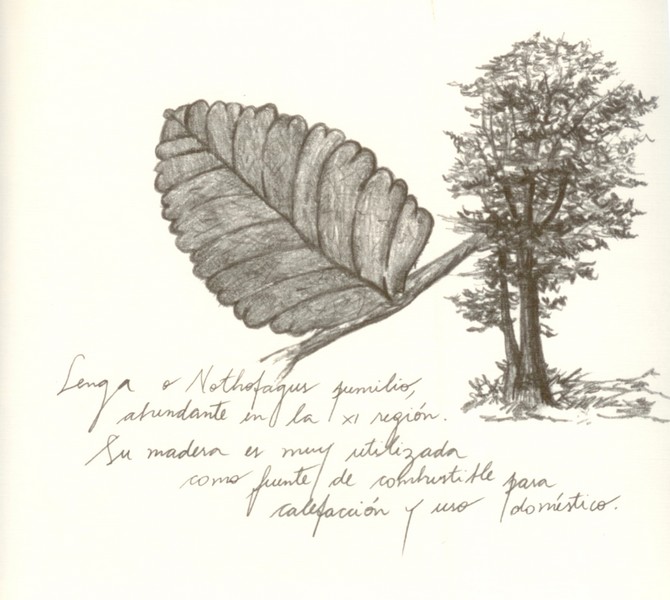 Lenga o Nothofagus pumilio,
abundante en la XI región.
Su madera es muy utilizada
como fuente de combustible para
calefacción y uso doméstico.